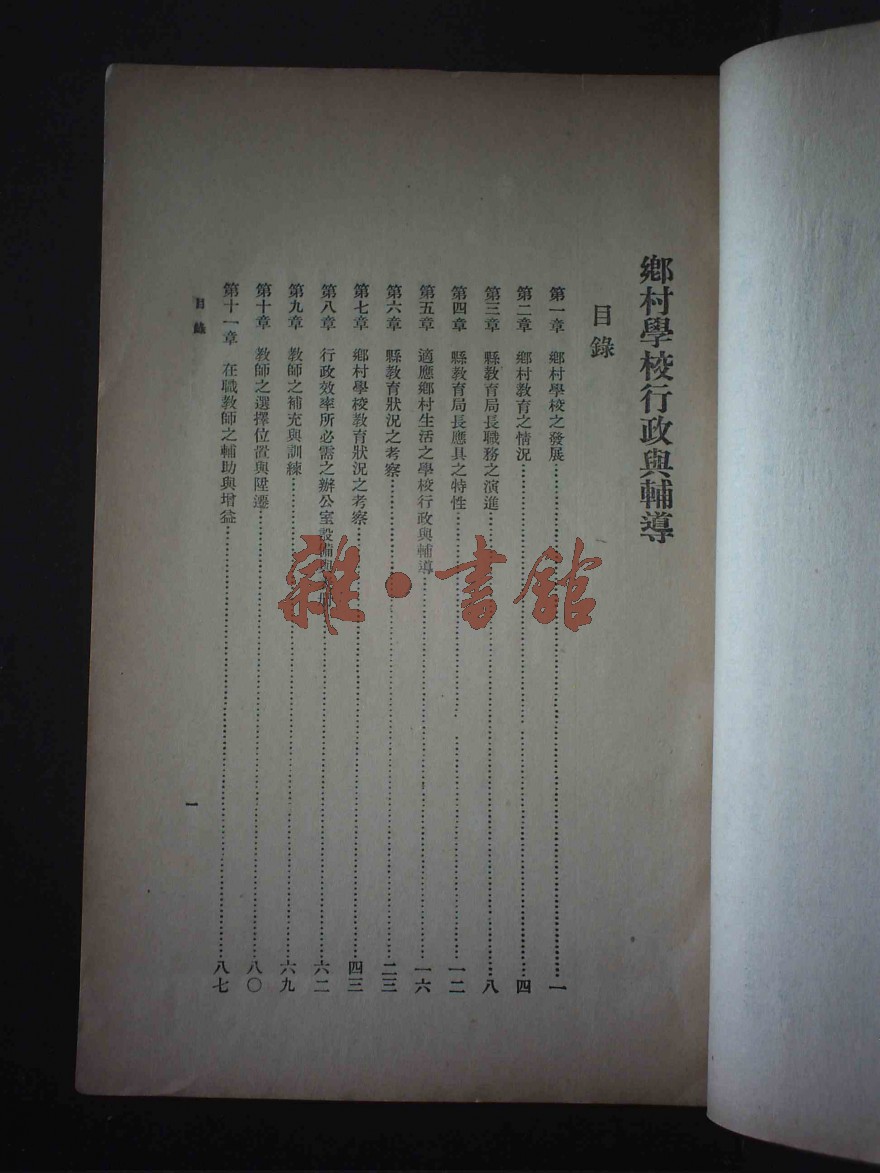 鄉村學校行政與輔導
目錄
第一章 鄉村學校之發展……一
第二章 鄉村教育之情況……四
第三章 縣教育局長職務之演進……八
第四章 縣教育局長應具之特性……一二
第五章 適應鄉村生活之學校行政與輔導……一六
第六章 縣教育狀況之考察……二三
第七章 鄉村學校教育狀況之考察……四三
第八章 行政效率所必需之辦公室設備與……六二
第九章 教師之補充與訓練……六九
第十章 教師之選擇位置與陞遷……八〇
第十一章 在職教師之輔助與增益……八七
目錄
一
雜·書館